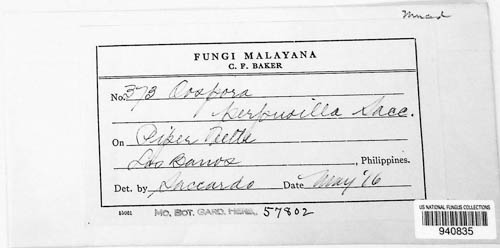 FUNGI MALAYANA
C. F. BAKER
No. 373 Oospora
perpusilla Sacc.
On Piper Betle
Los Banos, Philippines.
Det. by Saccardo Date May '16
MO. BOT. GARD. HERB. 57802
US NATIONAL FUNGUS COLLECTIONS
940835